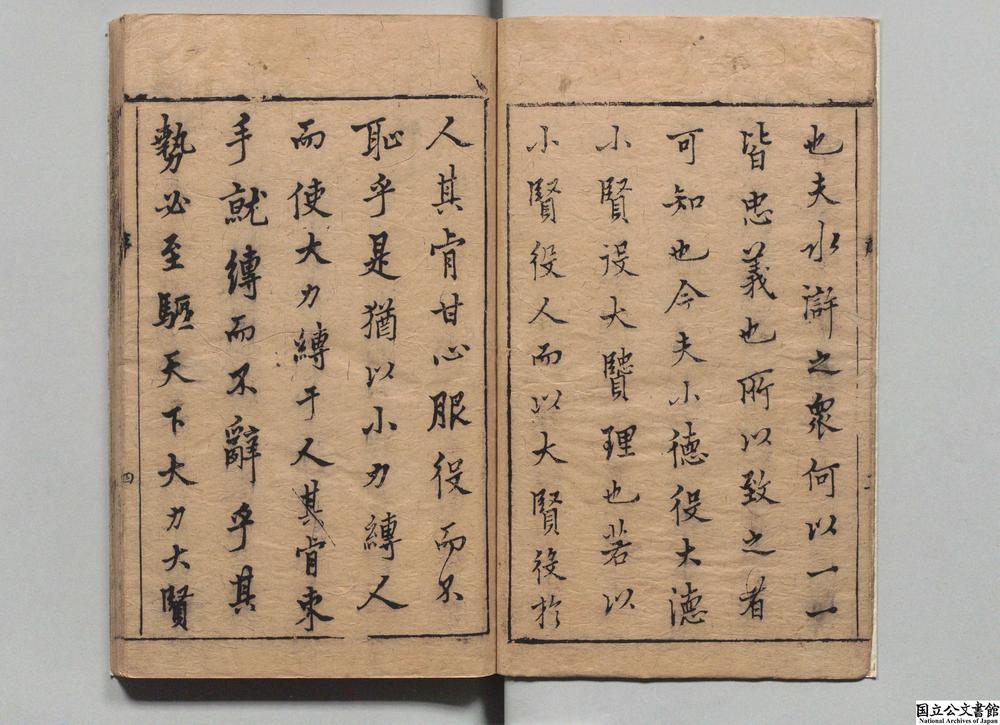 也夫水滸之衆何以一一
皆忠義也所以致之者
可知也今夫小德役大德
小賢役大賢理也若以
小賢役人而以大賢役於
人其肯甘心服役而不
恥乎是猶以小力縛人
而使大力縛于人其肯束
手就縛而不辭乎其
勢必至驅天下大力大賢
序
四
国立公文書館
National Archives of Japan